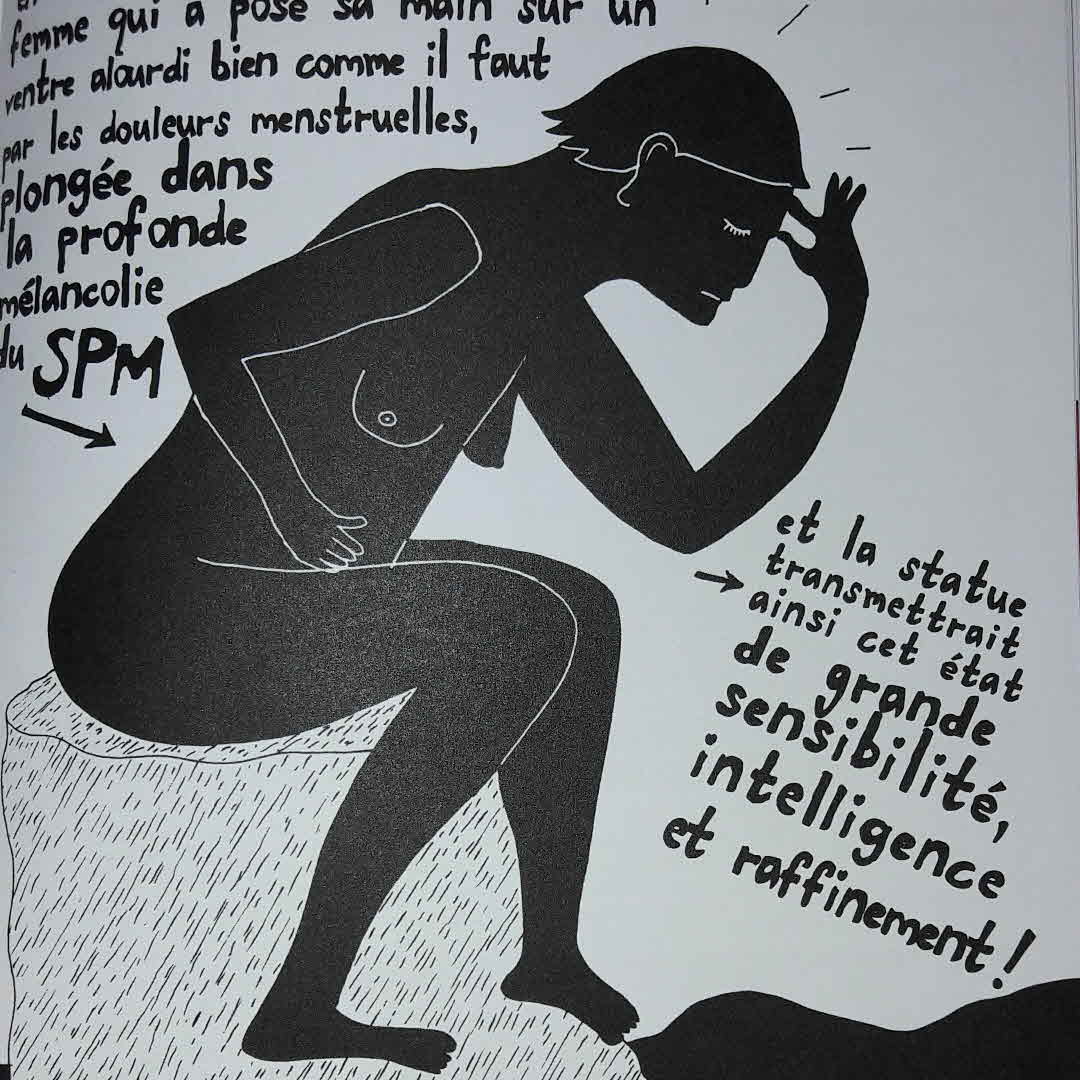 femme qui a posé sa main sur un
ventre alourdi bien comme il faut
par les douleurs menstruelles,
plongée dans
la profonde
mélancolie
du SPM
et la statue
transmettrait
ainsi cet état
de grande
sensibilité,
intelligence
et raffinement!